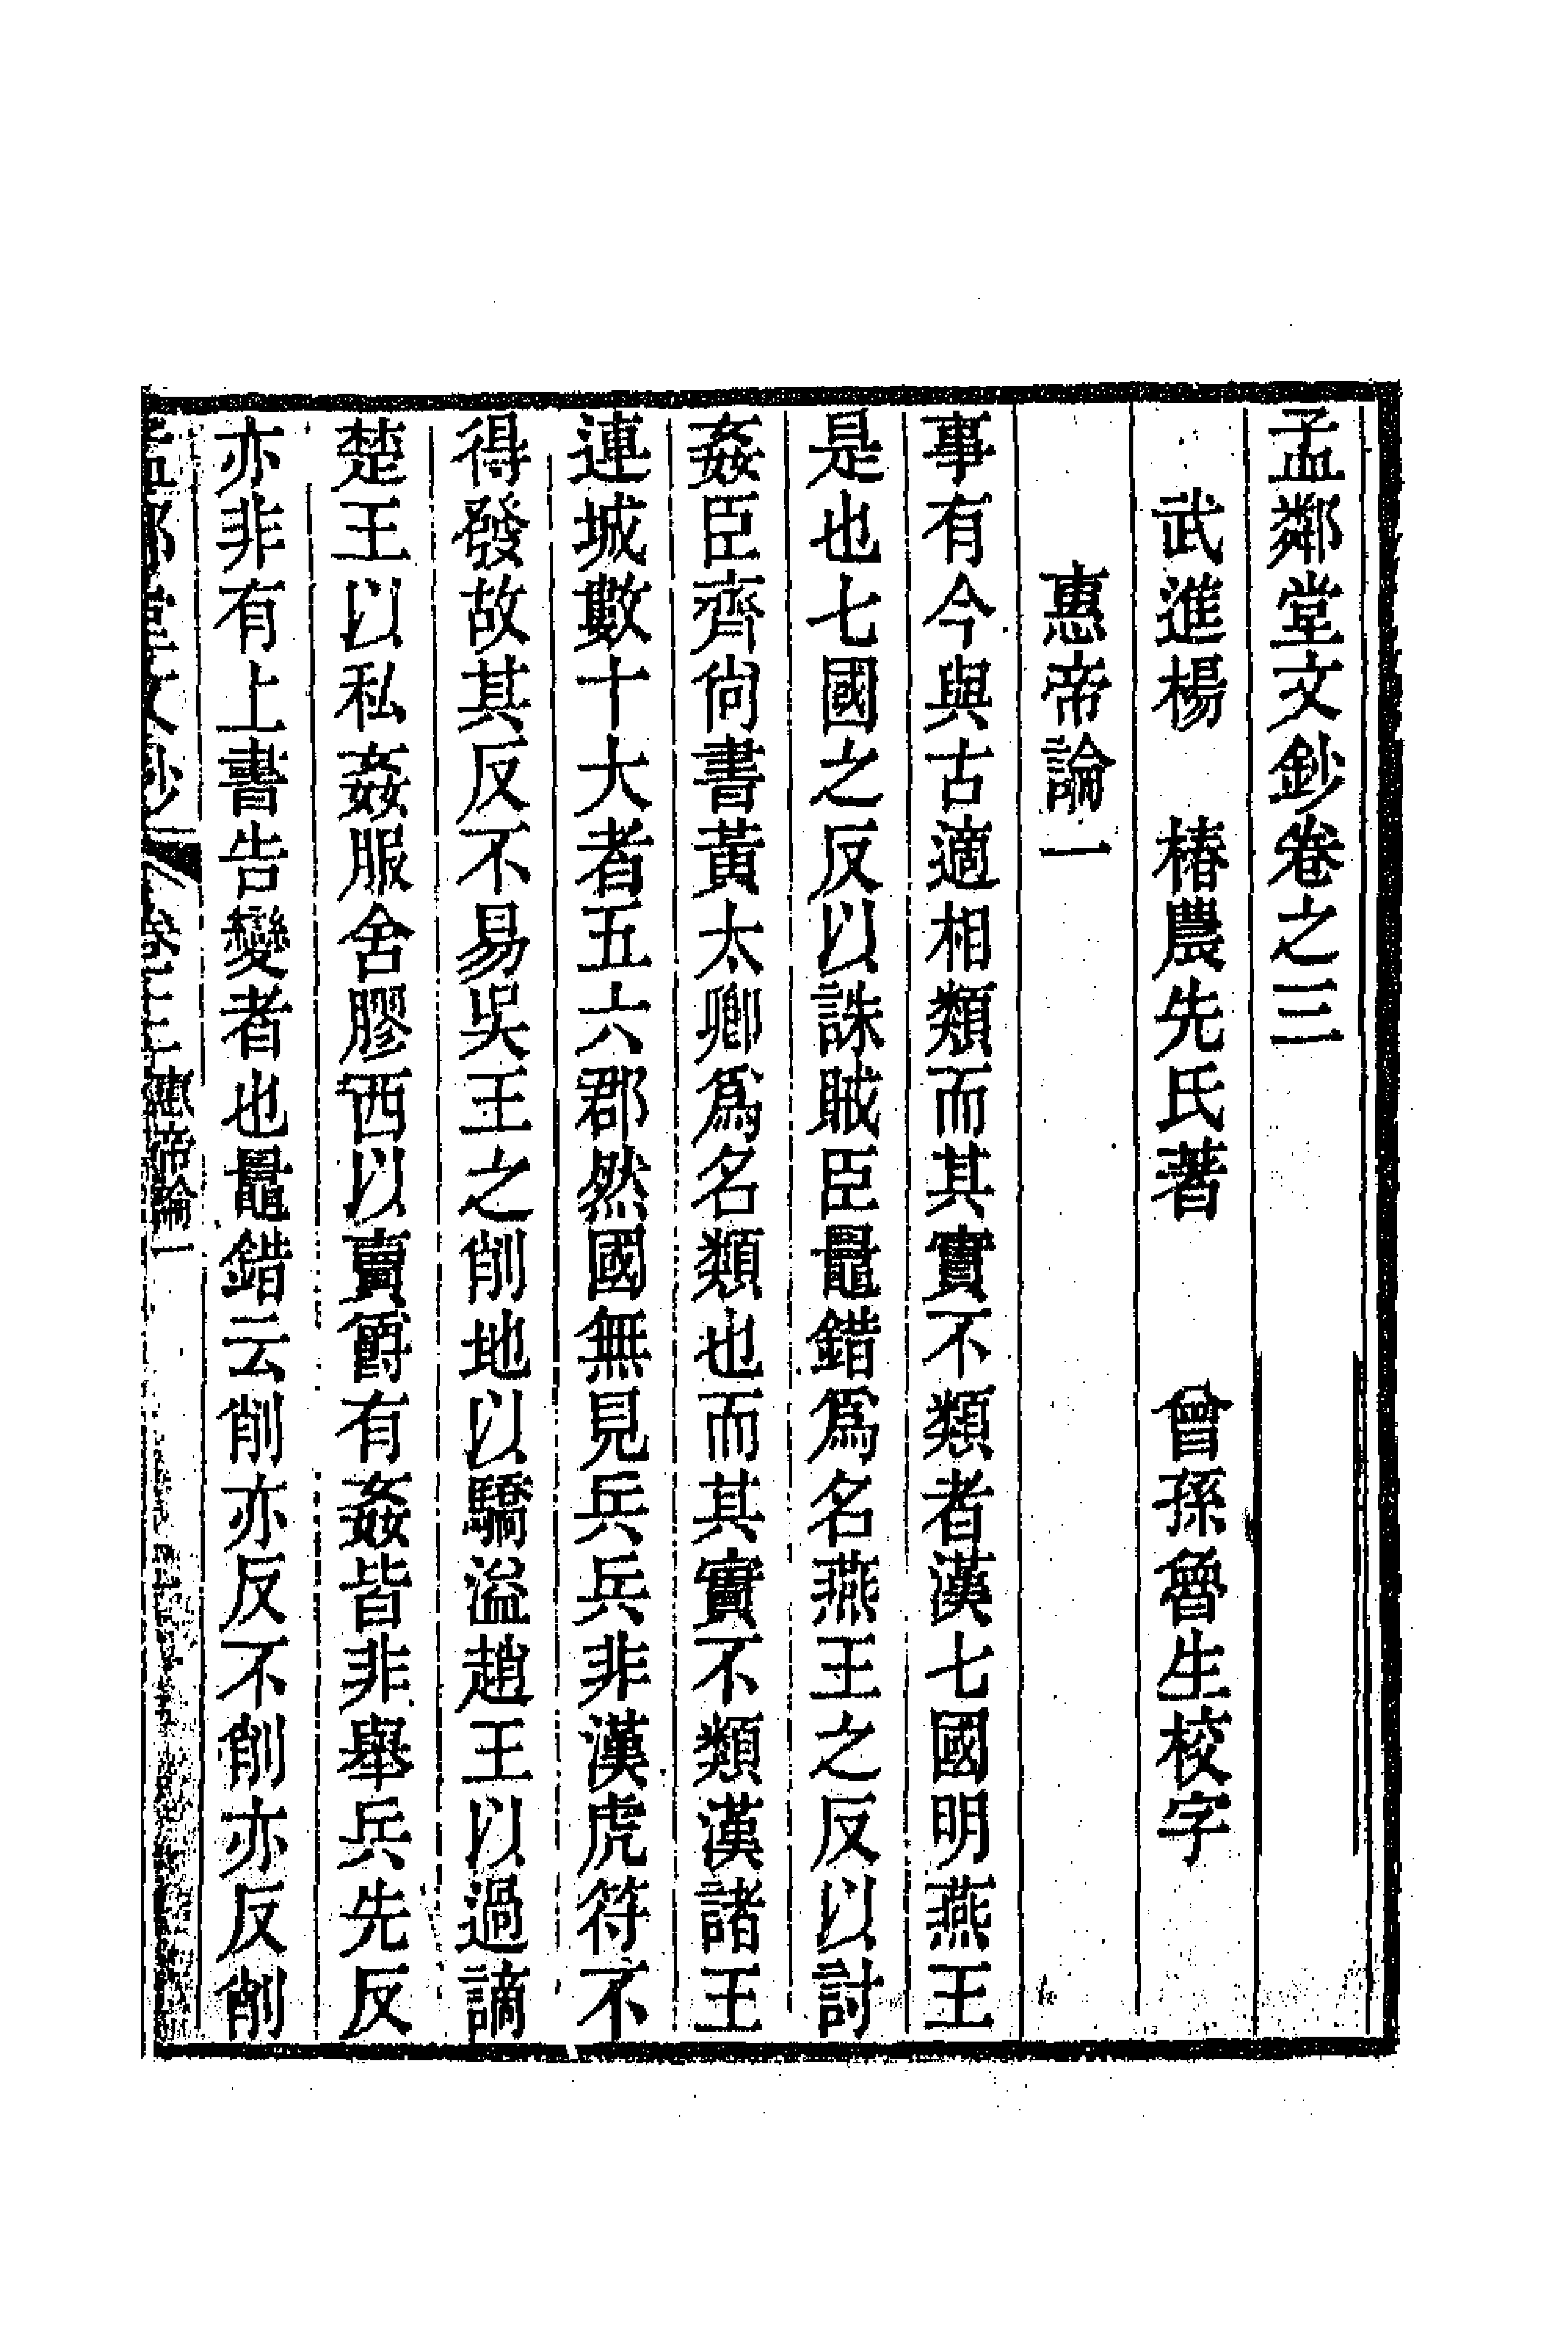 孟鄰堂文鈔卷之三
武進楊　椿農先氏著　　曾孫魯生校字
惠帝論一
事有今與古適相類而其實不類者漢七國明燕王
是也七國之反以誅賊臣鼂錯爲名燕王之反以討
姦臣齊尙書黃太卿爲名類也而其實不類漢諸王
連城數十大者五六郡然國無見兵兵非漢虎符不
得發故其反不易吳王之削地以驕溢趙王以過謫
楚王以私姦服舍膠西以賣爵有姦皆非舉兵先反
亦非有上書告變者也鼂錯云削亦反不削亦反削
孟鄰堂文鈔　卷三　惠帝論一